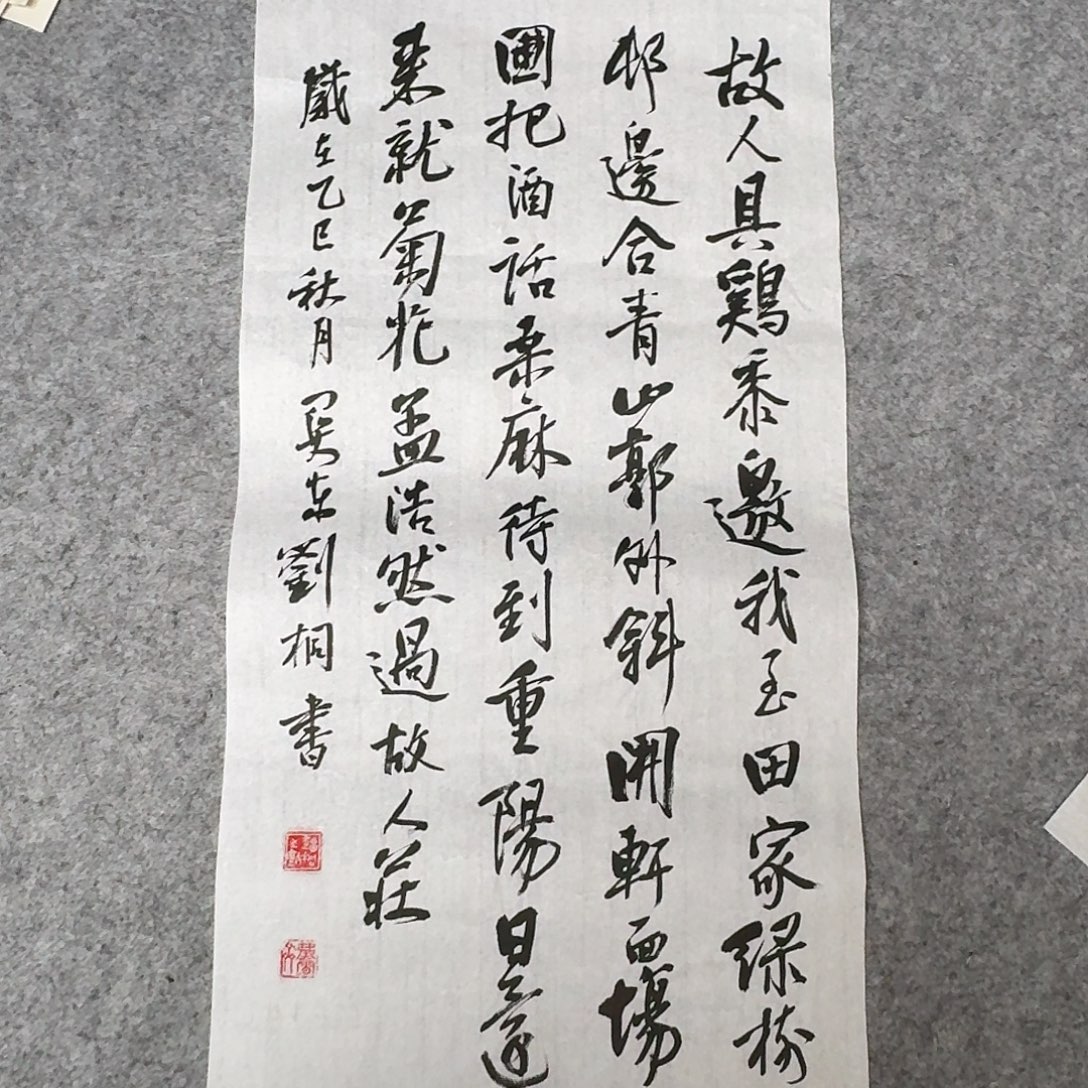 故人具鷄黍邀我至田家緑樹
邨邊合青山郭外斜開軒面場
圃把酒話桒麻待到重陽日還
来就菊花孟浩然過故人莊
歲在乙巳秋月関东劉桐書